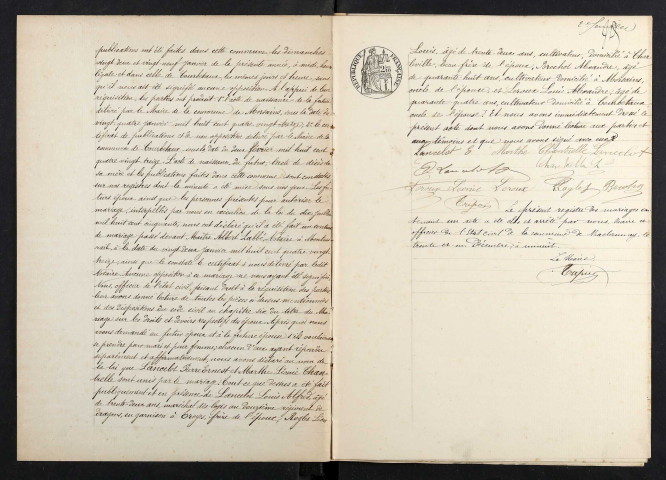 publications ont été faites dans cette commune les dimanches
vingt deux et vingt neuf janvier de la présente année, à midi heure
légale et dans celle de les mêmes jours et heure, sans
qu'il nous ait été signifié aucune opposition. A l'appui de leur
réquisition, les parties ont produit l'acte de naissance de la future
délivré par le Maire de la commune de sous la date du
vingt quatre janvier mil huit cent quatre vingt treize; et le cer
tificat de publications et de non opposition délivré par le Maire de la
commune de sous la date du deux février mil huit cent
quatre vingt treize. L'acte de naissance du futur, l'acte de décès de
sa mère et les publications faites dans cette commune sont constatés
sur nos registres dont la minute a été mise sous nos yeux. Les fu
turs époux, ainsi que les personnes présentes pour autoriser le
mariage, interpellés par nous en exécution de la loi du dix juillet
mil huit cent cinquante nous ont déclaré qu'il a été fait un contrat
de mariage passé devant Maître Albert Labbé, Notaire à
sous la date du vingt deux janvier mil huit cent quatre vingt
treize, ainsi que le constate le certificat à nous délivré par ledit
Notaire. Aucune opposition à ce mariage ne nous ayant été signifiée
Nous officier de l'état civil, faisant droit à la réquisition des parties
leur avons donné lecture de toutes les pièces ci dessus mentionnées
et des dispositions du code civil au chapitre six du titre du Ma
riage sur les droits et devoirs respectifs des époux. Après quoi nous
avons demandé au futur époux et à la future épouse s'ils veulent
se prendre pour mari et pour femme; chacun d'eux ayant répondu
séparément et affirmativement, nous avons déclaré au nom de
la loi que Lancelot Pierre Ernest et Marthe Léonie
sont unis par le mariage. Tout ce que dessus a été fait
publiquement et en présence de Lancelot Louis Alfred, âgé
de trente deux ans, maréchal des logis au douzième régiment de
dragons, en garnison à Troyes, frère de l'époux; Léon
RÉPUBLIQUE FRANÇAISE
Louis, âgé de trente deux ans, cultivateur, domicilié à
de l'épouse; Alexandre, âgé
de quarante huit ans, cultivateur domicilié à
oncle de l'épouse et Leroux Louis Alexandre, âgé de
quarante quatre ans, cultivateur domicilié à
oncle de l'épouse. Et nous avons immédiatement dressé le
présent acte dont nous avons donné lecture aux parties et
aux témoins et que nous avons signé avec eux.
Lancelot E Marthe Lancelot
Lancelot
Leroux
Le présent registre des mariages con
tenant un acte a été clos et arrêté par nous, maire et
officier de l'état civil de la commune de le
trente et un Décembre, à minuit.
Le Maire